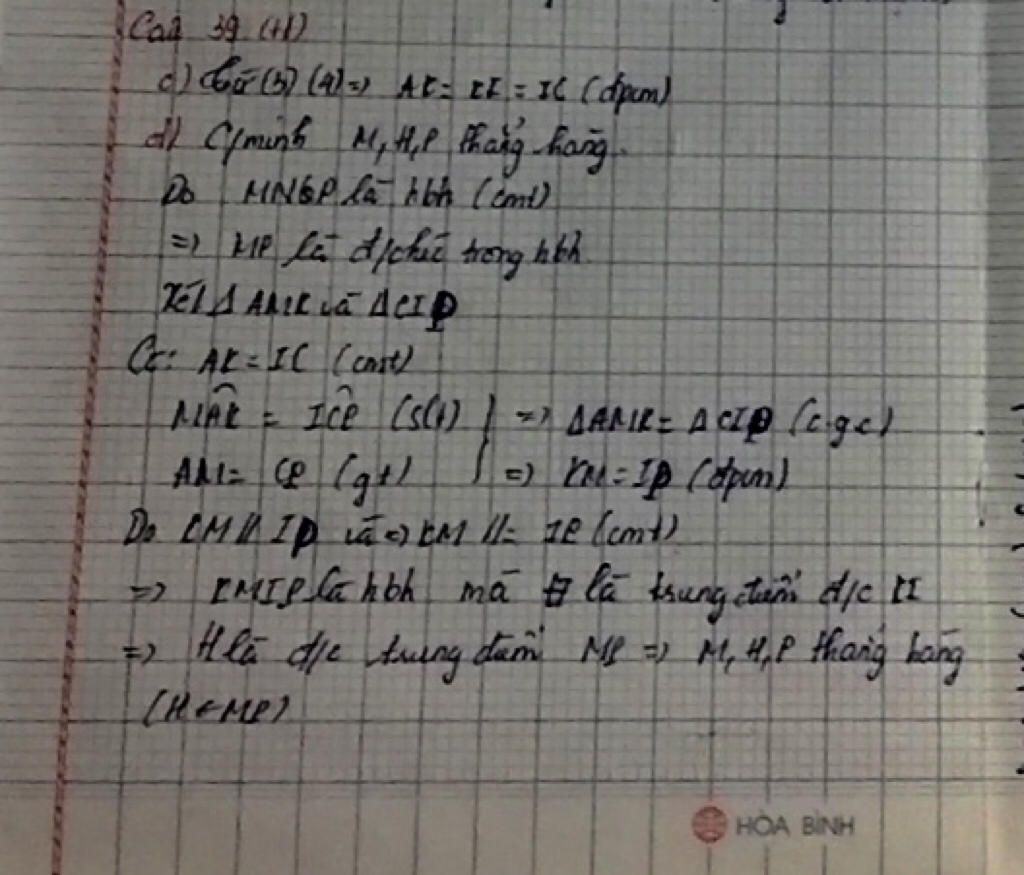 Câu 39 (tt)
c) Từ (3) (4) => AK = KI = IC (đpcm)
d) C/minh M, H, P thẳng hàng.
Do MNQP là hbh (cmt)
=> MP là đ/chéo trong hbh.
Xét Δ AMK và Δ CIP
Có: AK = IC (cmt)
MAK = ICP (slt) } => ΔAMK = ΔCIP (c.g.c)
AM = CP (gt) => KM = IP (đpcm)
Do KM // IP và => KM //= IP (cmt)
=> KMIP là hbh mà H là trung điểm đ/c KI
=> H là đ/c trung điểm MP => M, H, P thẳng hàng
(H ∈ MP)
HÒA BÌNH